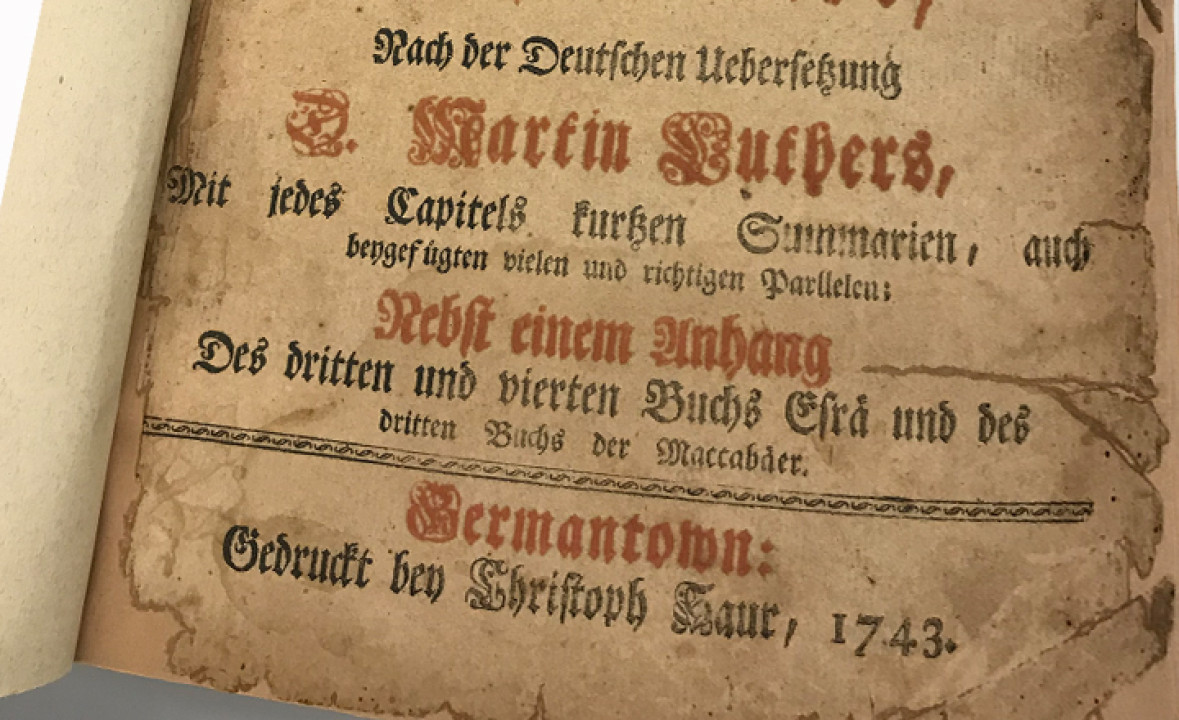 Nach der Deutschen Uebersetzung
D. Martin Luthers,
Mit jedes Capitels kurtzen Summarien, auch
beygefügten vielen und richtigen Parllelen;
Nebst einem Anhang
Des dritten und vierten Buchs Esrä und des
dritten Buchs der Maccabäer.
Germantown:
Gedruckt bey Christoph Saur, 1743.